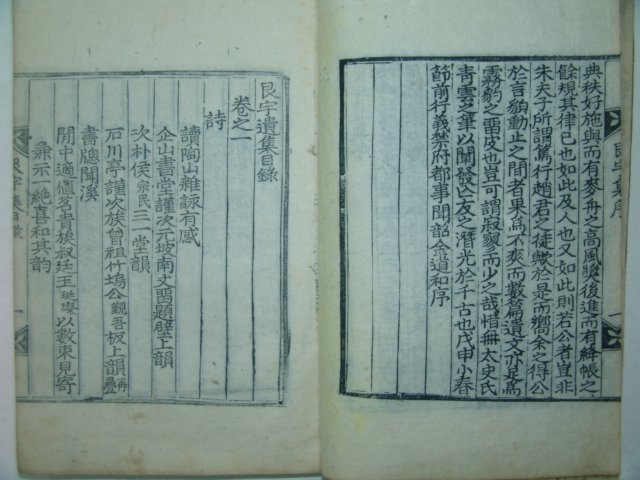 典秩好施與而有麥舟之高風獎後進而有絳帳之
餘規其律己也如此及人也又如此則若公者豈非
朱夫子所謂篤行趙君之徒歟於是而嚮余之得公
於言貌動止之間者果爲不爽而數篇遺文亦足爲
霧豹之留皮也豈可謂寂寥而少之哉惜無太史氏
靑雲之筆以闡發公之潛光於千古也戊申小春
節前行義禁府都事聞韶金道和序
艮宇集序
艮宇遺集目錄
卷之一
詩
讀陶山雜詠有感
企山書堂謹次元坡南丈留題壁上韻
次朴侯宗民三一堂韻
石川亭謹次族曾祖竹塢公觀吾板上韻再疊
書牕聞溪
閒中適値茗貴族叔廷玉以數束見寄
兼示一絶喜和其韵
艮宇集目錄
一